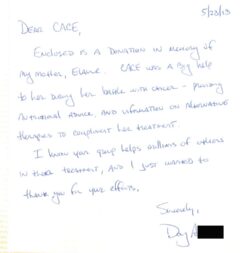 5/23/13
DEAR CACE,
ENCLOSED IS A DONATION IN MEMORY OF
MY MOTHER, ELAINE. CACE WAS A BIG HELP
TO HER DURING HER BATTLE WITH CANCER - PROVIDING
NUTRITIONAL ADVICE, AND INFORMATION ON ALTERNATIVE
THERAPIES TO COMPLIMENT HER TREATMENT.
I KNOW YOUR GROUP HELPS OUTLINERS OF OTHERS
IN THEIR TREATMENT, AND I JUST WANTED TO
THANK YOU FOR YOUR EFFORTS.
SINCERELY,
DOUG